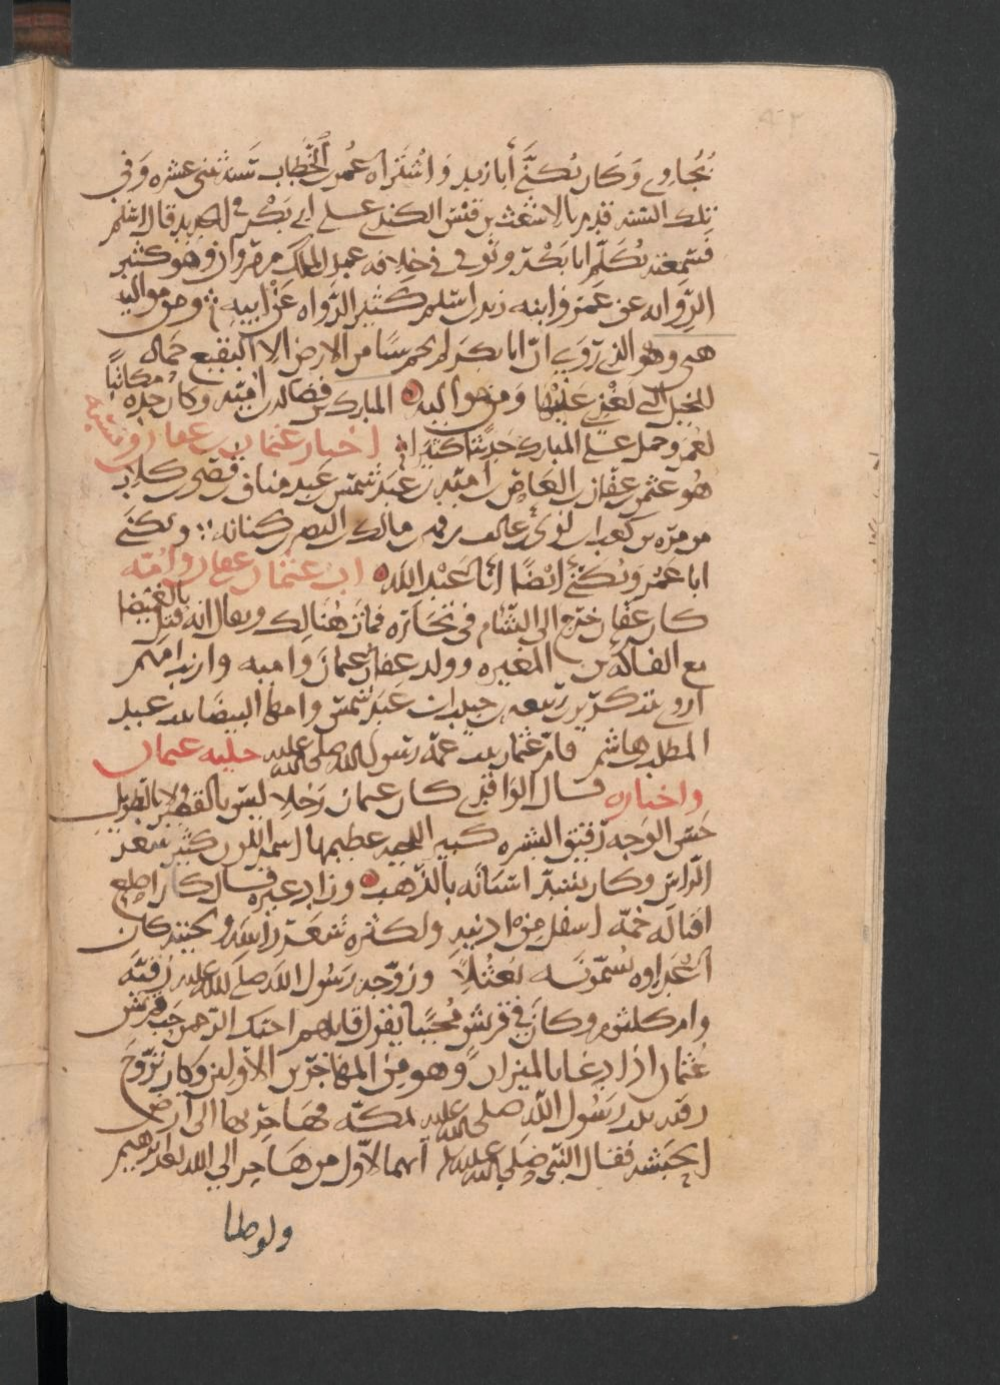 بجاوي وكان يكنى أبا زيد واشتراه عمر بن الخطاب سنة ثنتي عشره وفي
تلك السنه قدم بالاشعث بن قيس الكندي على ابي بكر في الحديد قال اسلم
فسمعته يكلم ابا بكر وتوفي في خلافه عبد الملك بن مروان وهو كثير
الروايه عن عمر وابنه زيد بن اسلم كثير الرواه عن ابيه ومن مواليه
هني وهو الذي روى ان ابا بكر لم يحم شيا من الارض الا البقيع حماه
للخيل التي يغزي عليها ومن مواليه المبارك بن فضاله بن اميه وكان جده مكاتبا
لعمر وحمل على المبارك حديثا كثيرا اخبار عثمان بن عفان ونسبه
هو عثمن بن عفان بن العاص بن اميه بن عبد شمس بن عبد مناف بن قصي بن كلاب
بن مره بن كعب بن لوي بن غالب بن فهر بن مالك بن النضر بن كنانه ويكنى
ابا عمرو ويكنى ايضا ابا عبد الله اب عثمان عفان وامه
كان عفان خرج الى الشام في تجاره فمات هنالك ويقال انه قتل بالغميصا
مع الفاكه بن المغيره وولد عفان عثمان واميه وارنب امهم
اروى بنت كريز بن ربيعه بن حبيب بن عبد شمس وامها البيضا بنت عبد
المطلب بن هاشم فام عثمان بنت عمه رسول الله صلى الله عليه حليه عثمان
واخباره قال الواقدي كان عثمان رجلا ليس بالقصير ولا بالطويل
حسن الوجه رقيق البشره كبير اللحيه عظيمها اسمر اللون كثير شعر
الراس وكان يشد اسنانه بالذهب وزاد غيره قال كان اصلع
اقنا له جمه اسفل من اذنيه ولكثره شعر راسه ولحيته كان
اعداوه يسمونه نعثلا وزوجه رسول الله صلى الله عليه رقيه
وام كلثوم وكان في قريش محببا يقول قايلهم احبك الرحمن حب قريش
عثمان اذ ادعا بالميزان وهو من المهاجرين الاولين وكان تزوج
رقيه بنت رسول الله صلى الله عليه بمكه فهاجر بها الى ارض
الحبشه فقال النبي صلى الله عليه انهما لاول من هاجر الى الله بعد ابرهيم
ولوطا